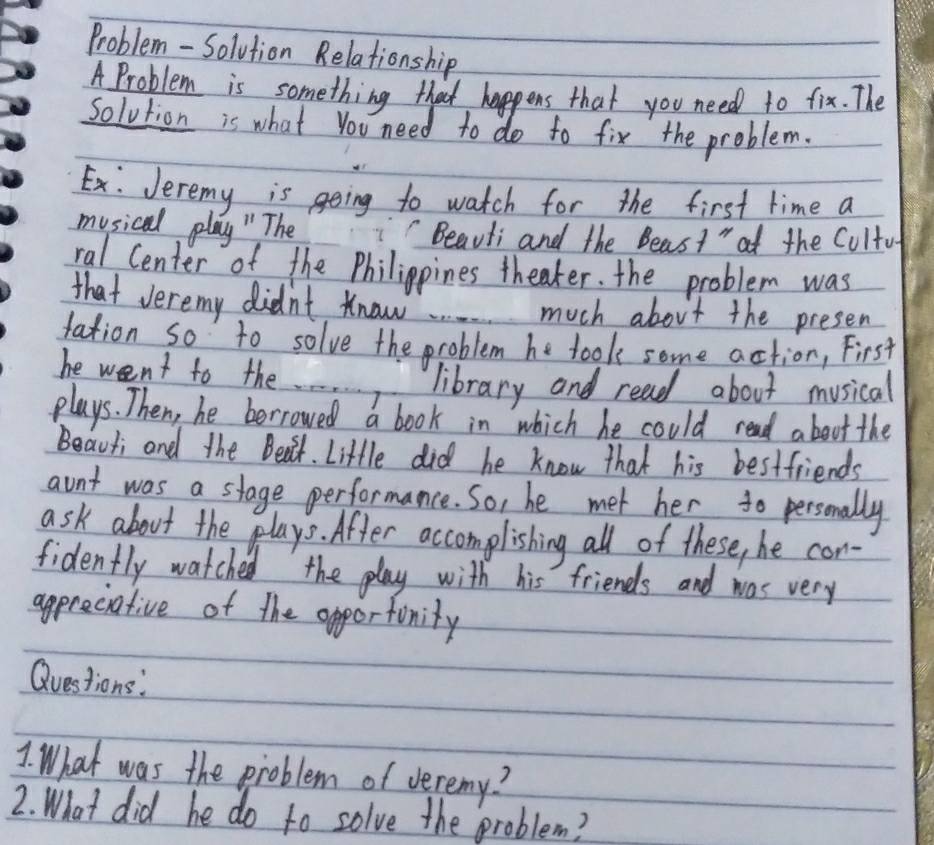 Problem - Solution Relationship
A Problem is something that happens that you need to fix. The
Solution is what You need to do to fix the problem.
Ex: Jeremy is going to watch for the first time a
musical play "The Beauti and the Beast" at the Cultu-
ral Center of the Philippines theater. the problem was
that Jeremy didnt know much about the presen
tation so to solve the problem he took some action, First
he went to the library and read about musical
plays. Then, he borrowed a book in which he could read about the
Beauti and the Beast. Little did he know that his bestfriends
aunt was a stage performance. So, he met her to personally
ask about the plays. After accomplishing all of these, he con-
fidently watched the play with his friends and was very
appreciative of the opportunity
Questions:
1. What was the problem of Jeremy?
2. What did he do to solve the problem?